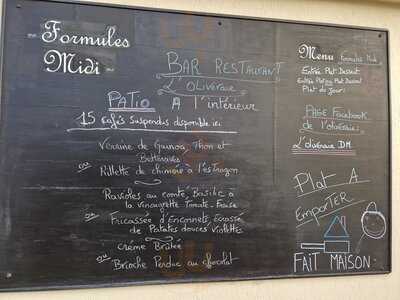 Formules
Midi
BAR RESTAURANT
L'oliveraie
PATIO A l'intérieur
15 cafés suspendus disponible ici
Verrine de Quinoa, Thon et
Betteraves
ou Rillette de chimère à l'estragon
Ravioles au comté, Basilic à
la vinaigrette Tomate-Fraise
ou Fricassée d'Encornets, Ecrasé
de Patates douces violettes
crème Brûlée
ou Brioche Perdue au chocolat
Menu Formules Midi
Entrée Plat Dessert
Entrée Plat ou Plat Dessert
Plat du Jour
PAGE Facebook
de l'oliveraie:
L'oliveraie DM
Plat A
EmpoRTER
FAIT MAISON